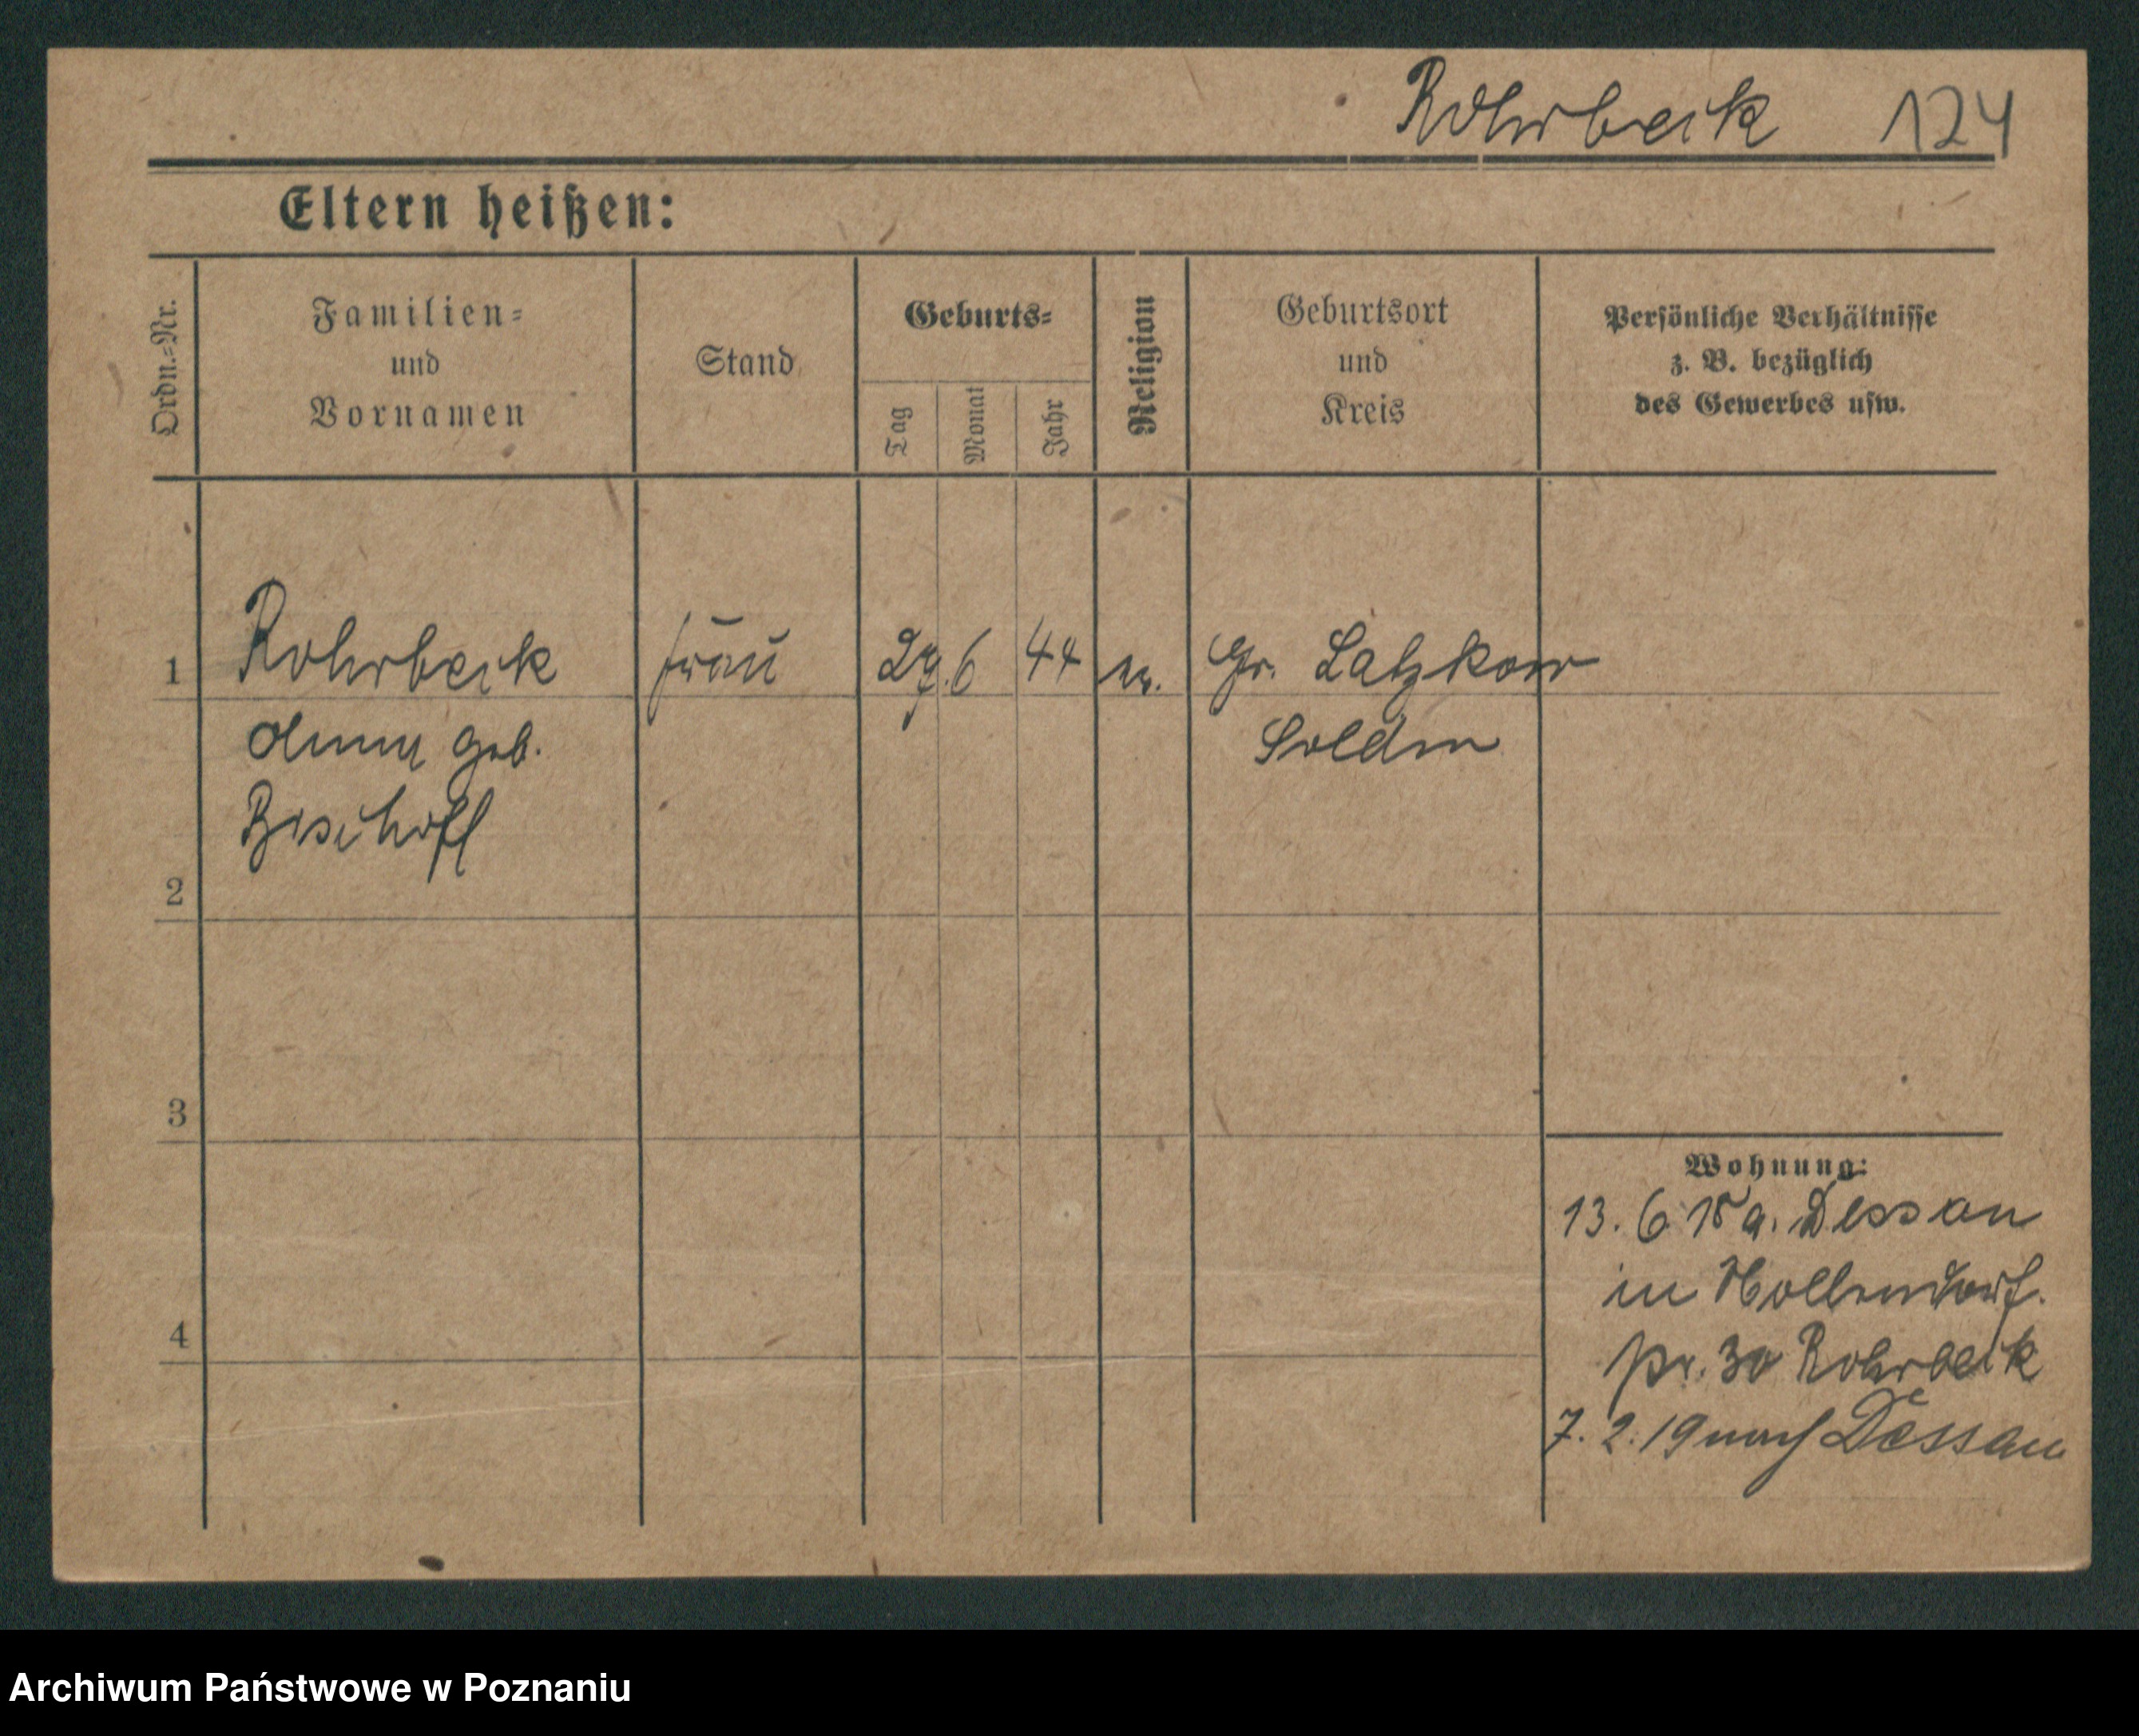 Rohrbeck 124
Eltern heißen:
Ordn.=Nr.
Familien=
und
Vornamen
Stand
Geburts=
Tag
Monat
Jahr
Religion
Geburtsort
und
Kreis
Persönliche Verhältnisse
z. B. bezüglich
des Gewerbes usw.
1 Rohrbeck Frau 29. 6 44 ev. Gr. Latzkow
Anna geb. Soldin
Bischoff
2
3
4
Wohnung:
13. 6. 18 a. Dessau
in Hollendorf.
pr. 30 Rohrbeck
7. 2. 19 nach Dessau
Archiwum Państwowe w Poznaniu